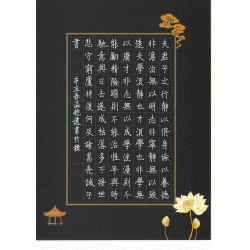 夫君子之行靜以修身儉以養德
非澹泊無以明志非寧靜無以致
遠夫學須靜也才須學也非學無
以廣才非志無以成學淫漫則不
能勵精險躁則不能治性年與時
馳意與日去遂成枯落多不接世
悲守窮廬將復何及諸葛亮誡子
書 辛丑春